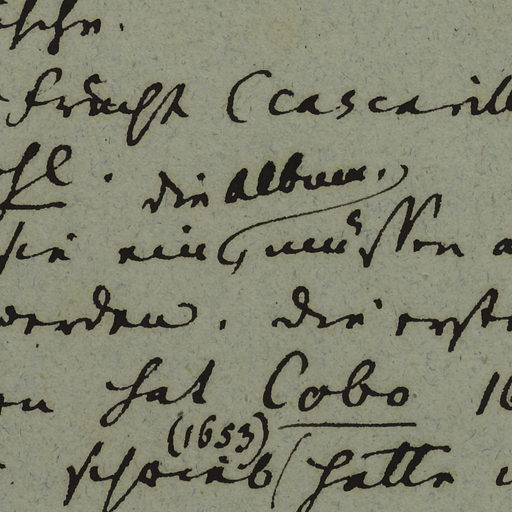 Frucht (Cascarill
die Album.
sie ein, müssen a
werden. die erste
hat Cobo 16
(1653)
schrieb hatte